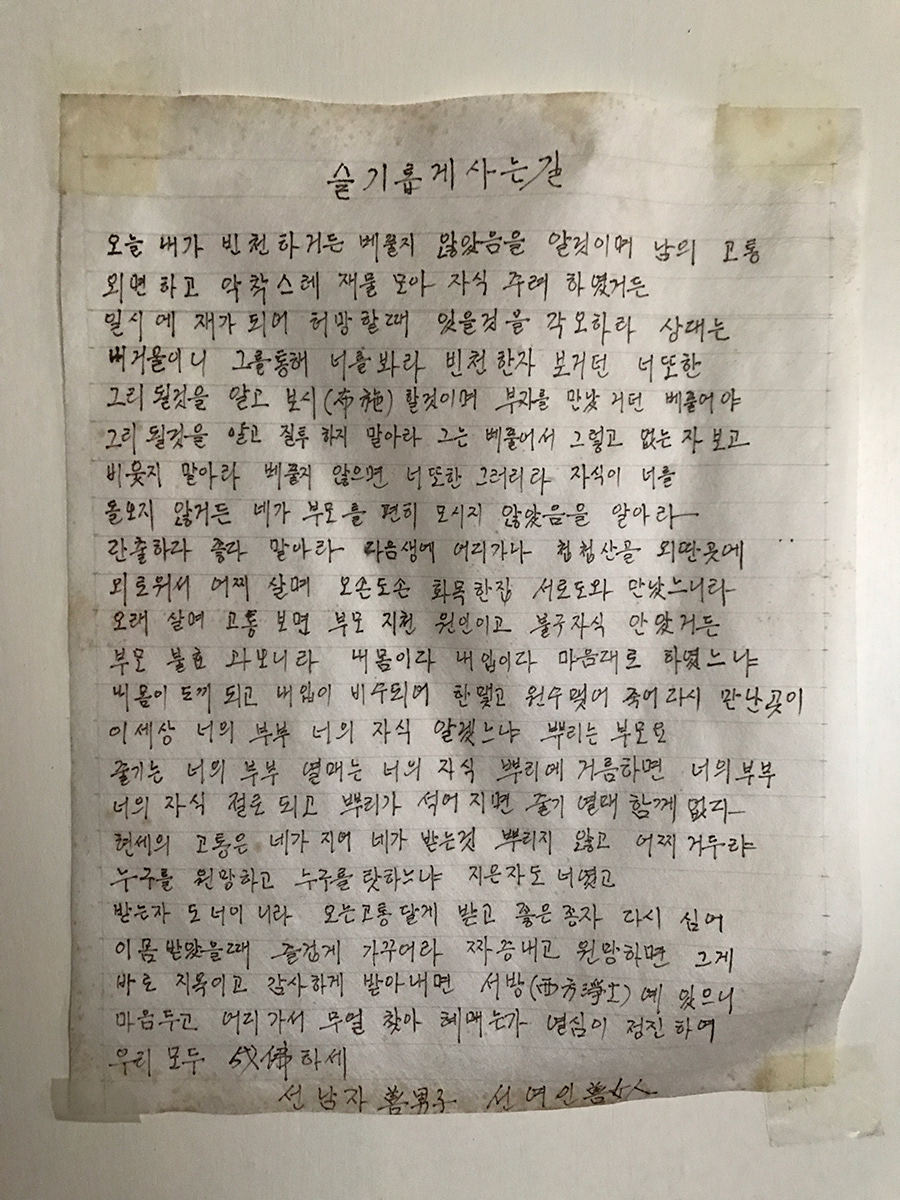 슬기롭게 사는길
오늘 내가 빈천하거든 베풀지 않았음을 알것이며 남의 고통
외면하고 악착스레 재물 모아 자식 주려 하였거든
일시에 재가 되어 허망할때 있을것을 각오하라 상대는
버거울이니 그를통해 너를 봐라 빈천한자 보거던 너또한
그리 될것을 알고 보시(布施) 할것이며 부자를 만났거던 베풀어야
그리 될것을 알고 질투 하지 말아라 그는 베풀어서 그렇고 없는 자 보고
비웃지 말아라 베풀지 않으면 너또한 그러리라 자식이 너를
돌오지 않거든 네가 부모를 편히 모시지 않았음을 알아라
단출하다 좋다 말아라 다음생에 어디가나 첩첩산골 외딴곳에
외로워서 어찌 살며 오손도손 화목한집 서로도와 만났느니라
오래 살며 고통 보면 부모 지천 원인이고 불구자식 안았거든
부모 불효 과보니라 내몸이다 내입이다 마음대로 하였느냐
내몸이 도끼 되고 내입이 비수되어 한맺고 원수맺어 죽어 다시 만난곳이
이세상 너의 부부 너의 자식 알겠느냐 뿌리는 부모요
줄기는 너의 부부 열매는 너의 자식 뿌리에 거름하면 너의부부
너의 자식 절로 되고 뿌리가 썩어 지면 줄기 열매 함께 없다
현세의 고통은 네가 지어 네가 받는것 뿌리지 않고 어찌 거두랴
누구를 원망하고 누구를 탓하느냐 지은자도 너였고
받는자 도 너이 니라 오는고통 달게 받고 좋은 종자 다시 심어
이몸 받았을때 즐겁게 가꾸어라 짜증내고 원망하면 그게
바로 지옥이고 감사하게 받아내면 서방(西方淨土)에 있으니
마음두고 어디가서 무얼 찾아 헤매는가 열심히 정진하여
우리 모두 成佛하세
선남자 善男子 선여인 善女人